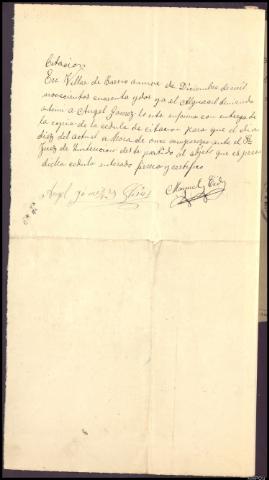 Citacion
En Villar de Barrio a nueve de Diciembre de mil
novecientos cuarenta y dos yo el Alguacil teniendo
a Angel Gomez le cite en forma con entrega de
la copia de la cedula de citacion para que el dia
diez del actual a hora de once comparezca ante el Sr
Juez de Instruccion de este partido al objeto que es
dicha cedula enterado firma y certifico
Angel Gomez
Manuel